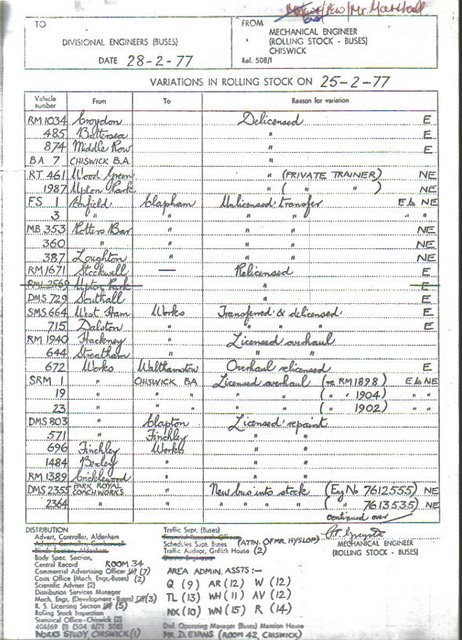 Mr Marshall
TO
DIVISIONAL ENGINEERS (BUSES)
DATE 28-2-77
FROM
MECHANICAL ENGINEER
(ROLLING STOCK - BUSES)
CHISWICK
Ref. 508/1
VARIATIONS IN ROLLING STOCK ON 25-2-77
Vehicle number From To Reason for variation
RM 1034 Croydon Delicensed E
485 Battersea " E
874 Middle Row " E
BA 7 CHISWICK B.A "
RT 461 Wood Green " (PRIVATE TRAINER) NE
1987 Upton Park " ( " " ) NE
FS 1 Enfield Clapham Unlicensed transfer E to NE
3 " " " " " "
MB 353 Potters Bar " " " NE
360 " " " " NE
387 Loughton " " " NE
RM 1671 Stockwell — Relicensed E
RML 2569 Upton Park " E
DMS 729 Southall " E
SMS 664 West Ham Works Transferred & delicensed E
715 Dalston " " " " E
RM 1940 Hackney " Licensed overhaul
644 Streatham " " "
672 Works Walthamstow Overhaul relicensed E
SRM 1 " CHISWICK BA Licensed overhaul (re RM 1898) E to NE
19 " " " " ( " " 1904) " "
23 " " " " ( " " 1902) " "
DMS 803 " Clapton Licensed repaint
571 " Finchley " "
696 Finchley Works " "
1484 Bexley " " "
RM 1389 Cricklewood " " "
DMS 2355 PARK ROYAL COACHWORKS " New bus into stock (Eng No 7612555) NE
2364 " " " " " " ( " " 7613535) NE
continued over
MECHANICAL ENGINEER
(ROLLING STOCK - BUSES)
DISTRIBUTION
Advert. Controller, Aldenham
Body Spec. Section,
Central Record ROOM 34
Commercial Advertising Officer (7)
Costs Office (Mech. Engr.-Buses) (2)
Scientific Adviser (2)
Distribution Services Manager
(Mech. Eng. Develop.-Buses) (3)
R. S. Licensing Section (5)
Rolling Stock Inspection
Statistical Office - Chiswick (2)
WORKS STUDY CHISWICK (1)
Traffic Supt. (Buses)
Schedules Supt. Buses (ATTN. OF MR. HYSLOP)
Traffic Auditor, Griffith House (2)
AREA ADMIN. ASSTS :-
Q (9) AR (12) W (12)
TL (13) WH (11) AV (12)
NX (10) WN (15) R (14)
Divl. Operating Manager (Buses) Mansion House
MR. D. EVANS (ROOM 42, CHISWICK)